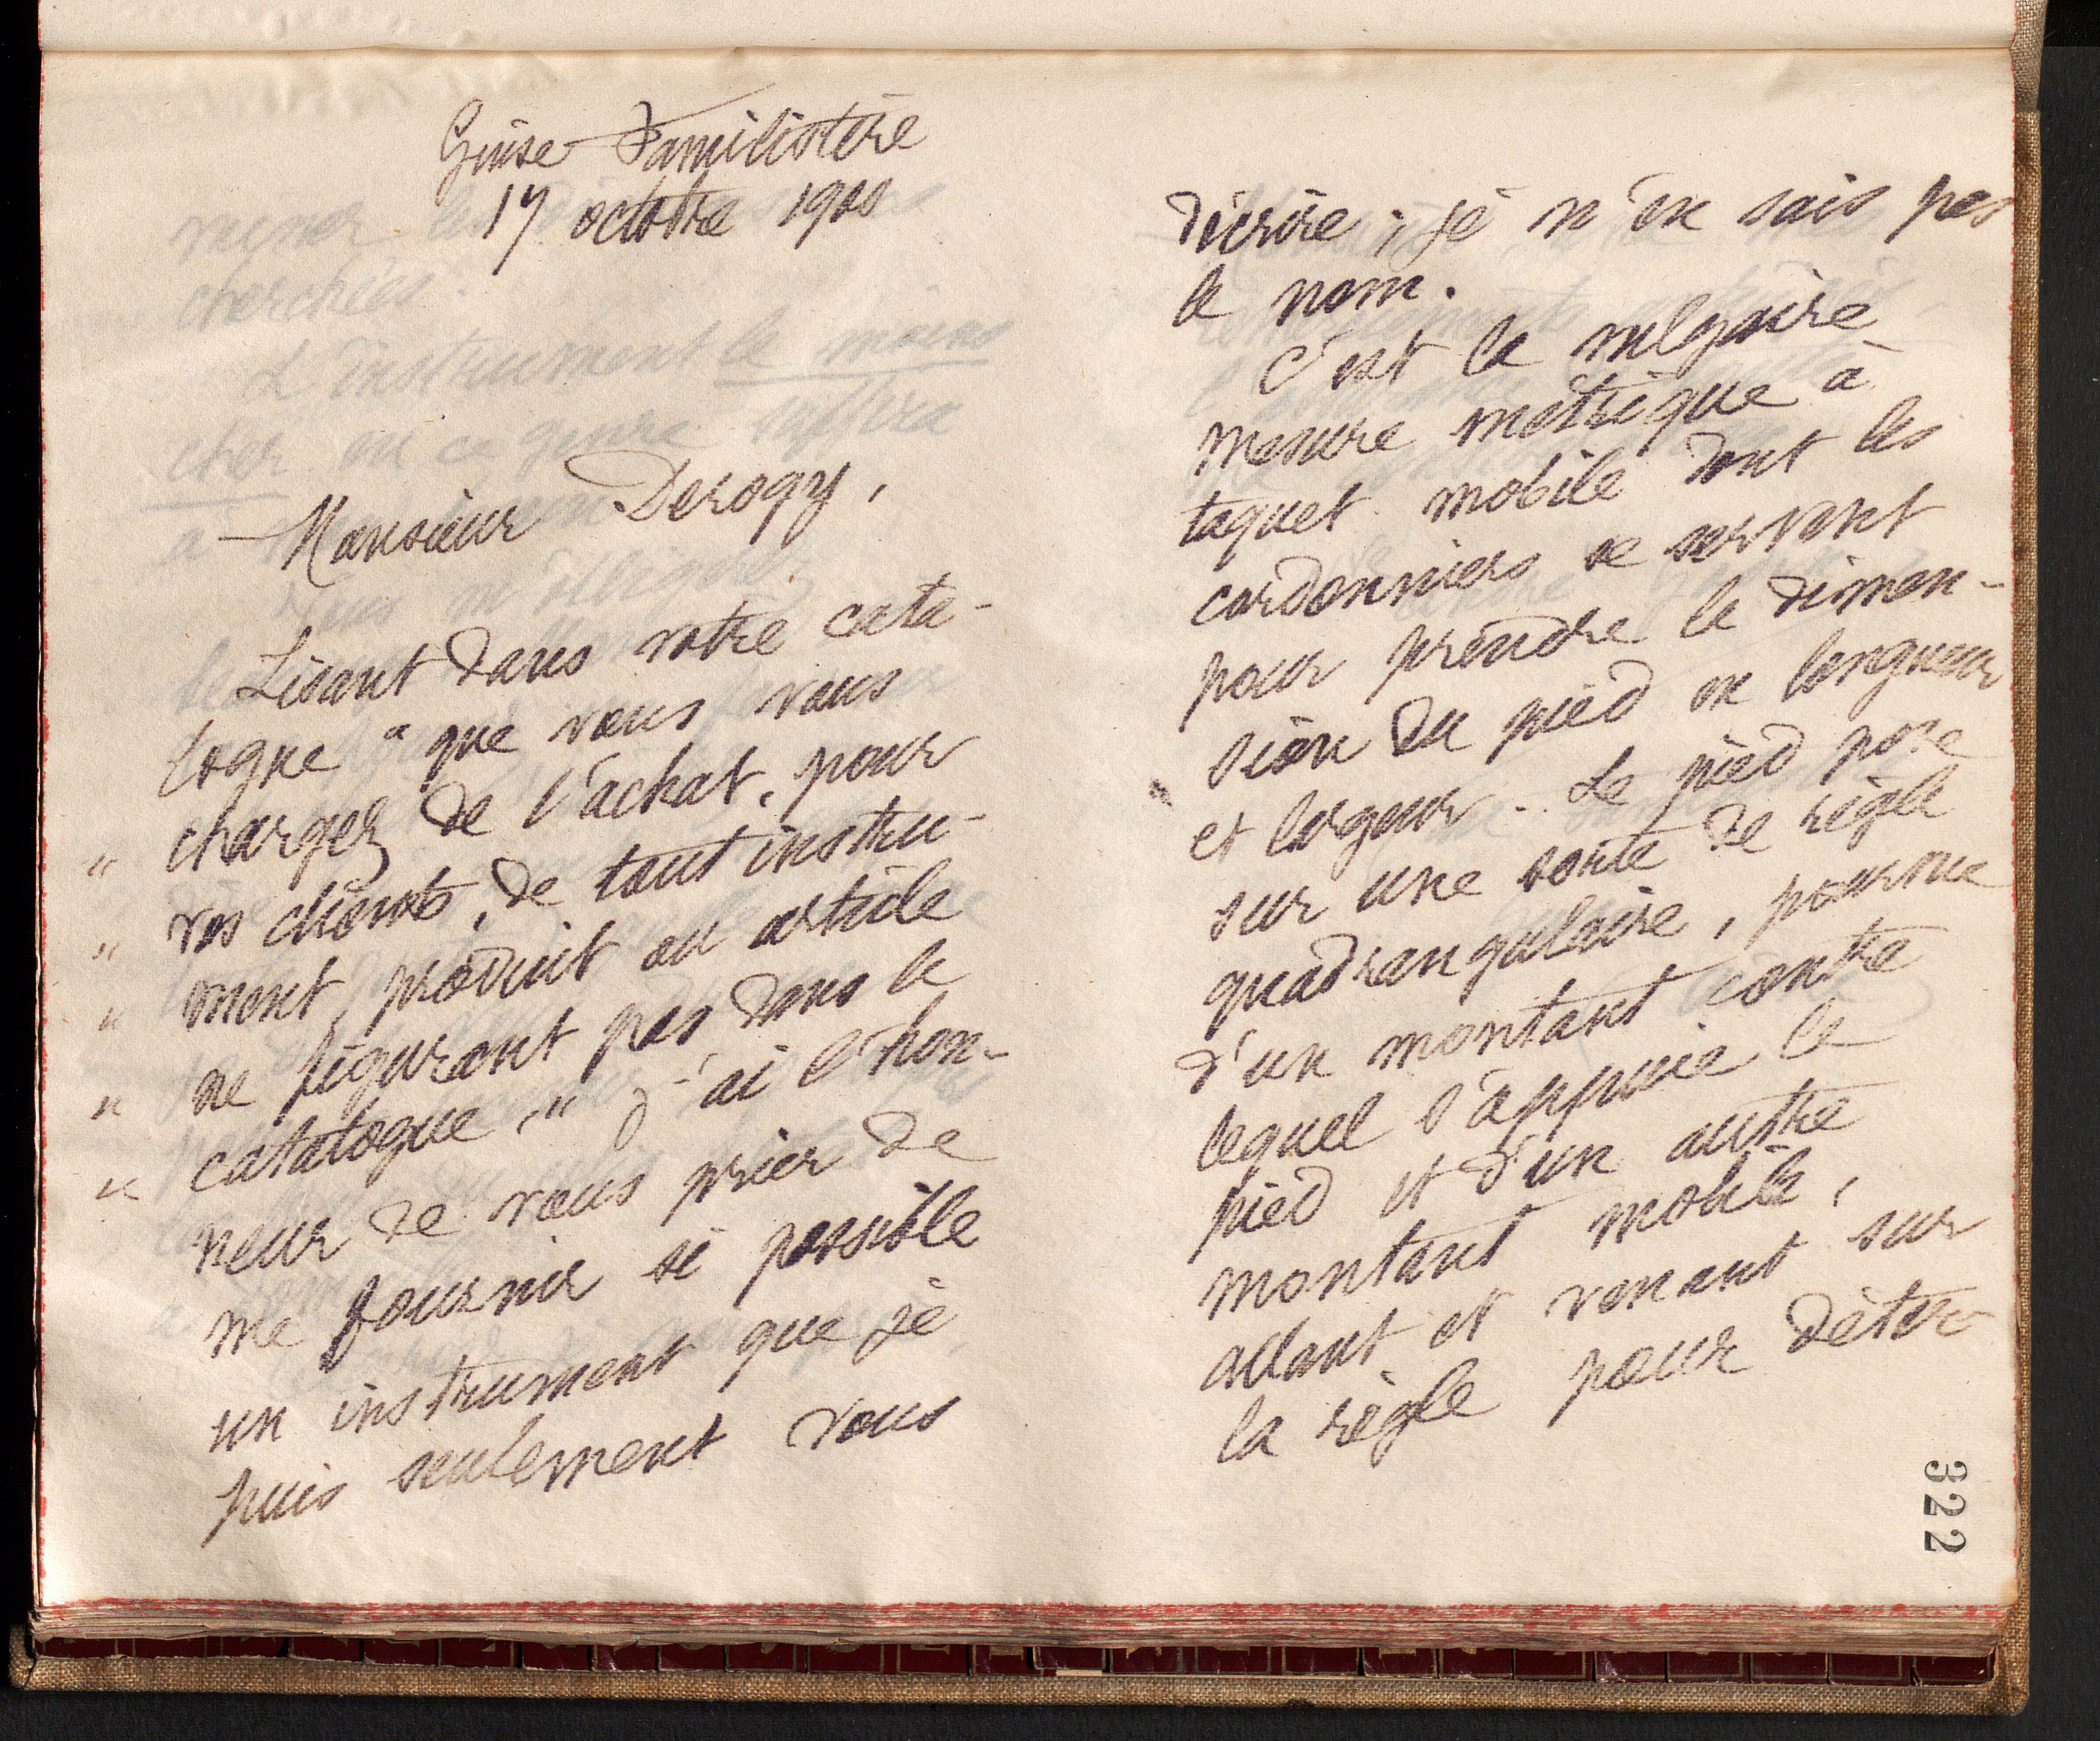 Guise Familistère
17 octobre 1900
Monsieur Derogy,
Lisant dans votre cata-
logue " que vous vous
" chargez de l'achat, pour
" vos clients, de tout instru-
" ment, produit ou article
" ne figurant pas dans le
" catalogue, " j'ai l'hon-
neur de vous prier de
me fournir si possible
un instrument que je
puis seulement vous
décrire ; je n'en sais pas
le nom.
C'est la vulgaire
mesure métrique à
taquet mobile dont les
cordonniers se servent
pour prendre la dimen-
sion du pied en longueur
et largeur. Le pied pose
sur une sorte de règle
quadrangulaire, pourvue
d'un montant contre
lequel s'appuie le
pied et d'un autre
montant mobile,
allant et venant sur
la règle pour déter-
322